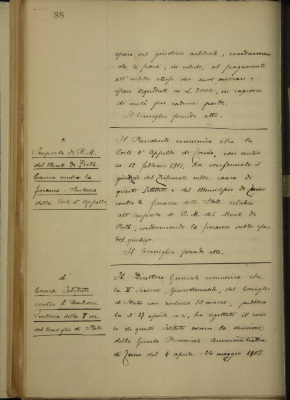 88
spese del giudizio arbitrale, condannando
le parti, in solido, al pagamento
all'arbitro stesso dei suoi onorari e
spese liquidate in L. 3000, in ragione
di metà per cadauna parte.
Il Consiglio prende atto.
Imposta di R. M.
del Monte di Pietà
Causa contro la
finanza. Sentenza
della Corte d'Appello
Il Presidente comunica che la
Corte d'Appello di
in 12 febbraio 1913, ha confermato il
giudizio del Tribunale nella causa di
questo Istituto e del Municipio di
contro la finanza dello Stato relativa
all'imposta di R. M. del Monte di
Pietà, condannando la finanza nelle spese
del giudizio.
Il Consiglio prende atto.
d.
Causa Istituto
contro
Sentenza della V sez.
del Consiglio di Stato
Il Direttore Generale comunica che
la V Sezione, Giurisdizionale, del Consiglio
di Stato con sentenza 28 marzo, pubblica
ta il 27 aprile u.s., ha rigettato il ricor
so di questo Istituto avverso la decisione
della Giunta Provinciale Amministrativa
di 4 aprile - 26 maggio 1913